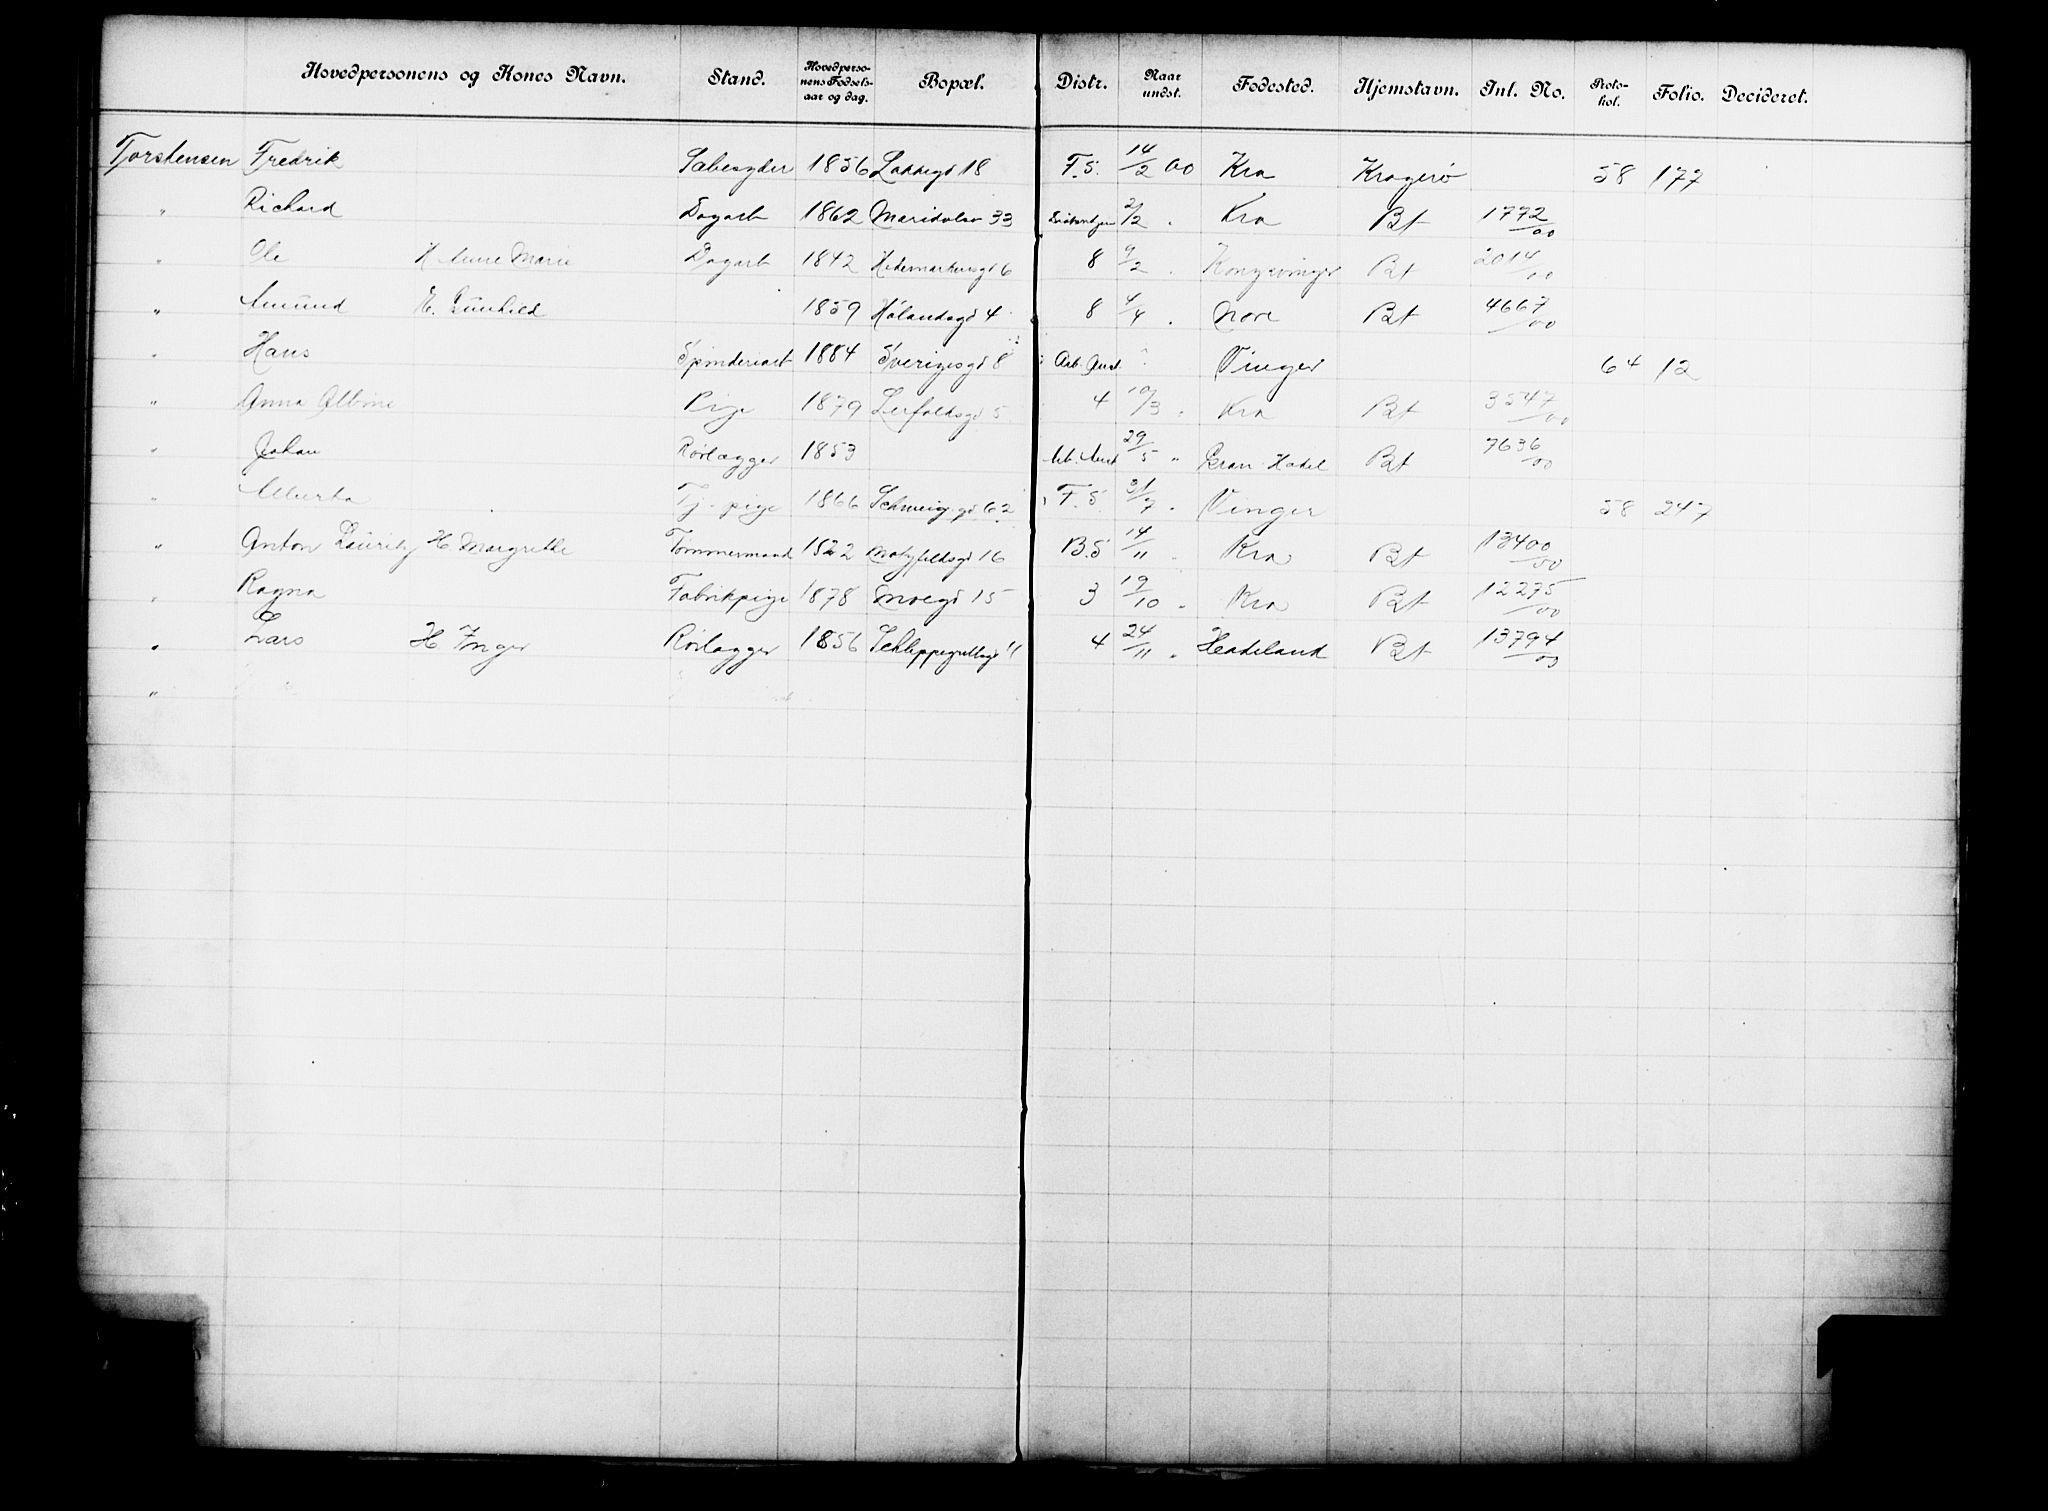 Hovedpersonens og Kones Navn. Stand. Hovedperso-nens Fødsels-aar og dag. Bopæl. Distr. Naar undst. Fødested. Hjemstavn. Inl. No. Proto-kol. Folio. Decideret.
Torstensen Fredrik Sæbesyder 1856 Lakkegd 18 F.S. 14/2 00 Kra Kragerø 58 177
" Richard Dagarb 1862 Maridalsv 33 2/2 " Kra Bt 1772/00
" Ole H. Anne Marie Dagarb 1842 Hedemarkensgd 6 8 9/2 " Kongsvinger Bt 2014/00
" Amund H. Gunhild 1859 Hølandsgd 4 8 4/4 " Nore Bt 4667/00
" Hans Spinderiarb 1884 Sverigesgd 8 Arb. Anst " Vinger 64 12
" Anna Albine Pige 1879 Lerfaldsgd 5 4 10/3 " Kra Bt 3547/00
" Johan Rørlægger 1853 Arb. Anst 29/5 " Gran Hadel Bt 7636/00
" Alberta Tj. pige 1866 Schweigsgd 62 F.S. 31/7 " Vinger 58 247
" Anton Lauritz H. Margrethe Tømmermand 1822 Motzfeldtsgd 16 B.S 14/11 " Kra Bt 13400/00
" Ragna Fabrikpige 1878 Moegd 15 3 19/10 " Kra Bt 12275/00
" Lars H Inger Rørlægger 1856 Schleppegrellsgd 11 4 24/11 " Hadeland Bt 13794/00
"